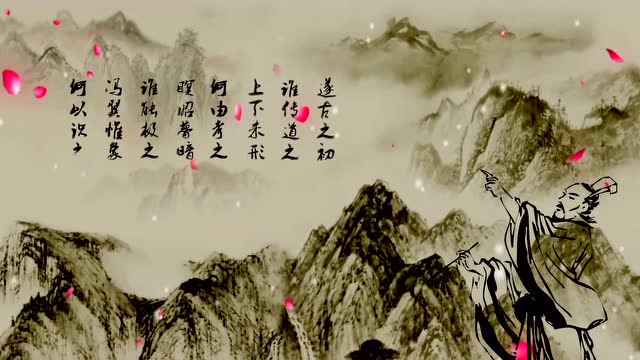 遂古之初
谁传道之
上下未形
何由考之
瞑昭瞢暗
谁能极之
冯翼惟象
何以识